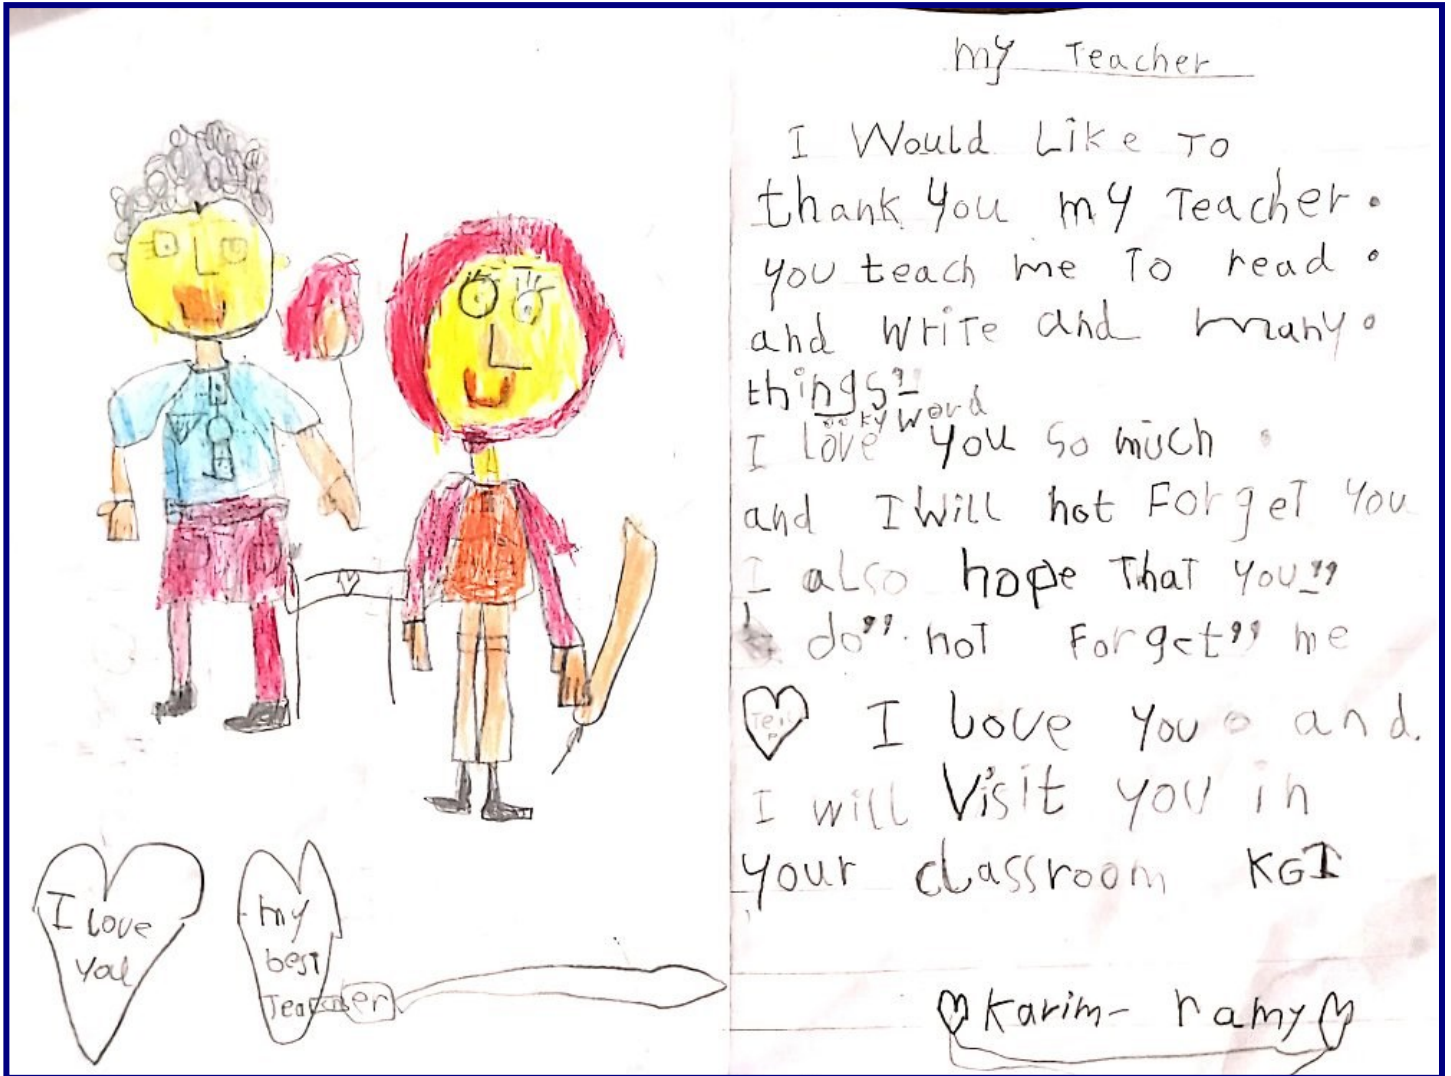 I Love
You
my
best
Teacher
my Teacher
I Would Like To
thank you my Teacher.
you teach me To read.
and write and many.
things
ky word
I love you so much.
and I Will not Forget You
I also hope That you"
do" not Forget" me
I Love You and.
I will Visit you in
your classroom KG1
Karim- ramy